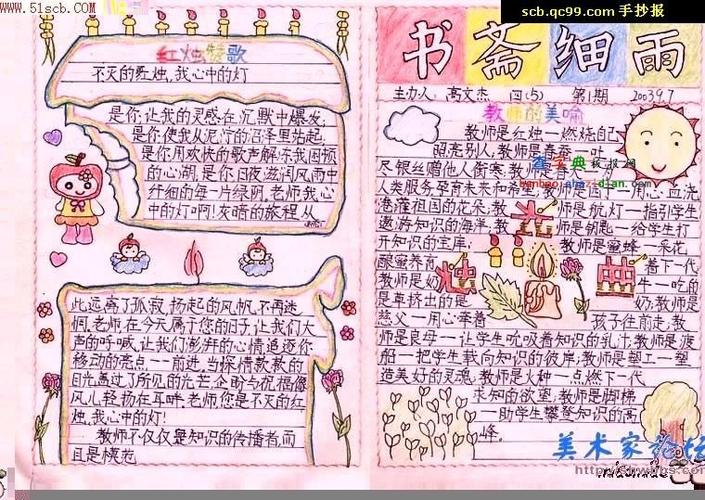 www.51scb.com
scb.qc99.com 手抄报
红烛赞歌
不灭的红烛,我心中的灯
是你,让我的灵感在沉默中爆发,
是你使我从泥泞的沼泽里站起,
是你用欢快的歌声解冻我困顿
的心湖,是你日夜滋润风雨中
纤细的每一片绿阴,老师我心
中的灯啊!发暗的旅程从
此远离了孤寂,扬起的风帆,不再迷
惘,老师,在今天属于您的日子,让我们大
声的呼喊,让我们澎湃的心情追逐你
移动的亮点一前进,当探情款款的
目光,盖过了所见的光芒,企盼与祝福像
风儿轻扬在耳畔,老师您是不灭的红
烛,我心中的灯!
教师不仅仅是知识的传播者,而
且是模范
书斋细雨
主办人:高文杰 四(5) 第1期 2003.9.7
教师的美喻
教师是红烛一燃烧自己
照亮别人;教师是春蚕一吐
尽银丝赠他人御寒;教师是春天一为
人类服务孕育未来和希望;教师是园丁一用心血浇
港灌祖国的花朵;教师是航灯一指引学生
遨游知识的海洋;教师是钥匙一给学生打
开知识的宝库;教师是蜜蜂一采花
酿蜜养育着下一代
教师是奶牛一吃的
是草挤出的是奶;教师是
慈父一用心牵着孩子往前走;教
师是良母一让学生吮吸着知识的乳汁,教师是渡
船一把学生载向知识的彼岸;教师是塑工一塑
造美好的灵魂;教师是火种一点燃下一代
求知的欲望;教师是脚梯
一助学生攀登知识的高
峰。
光
烛
典
美术家论坛